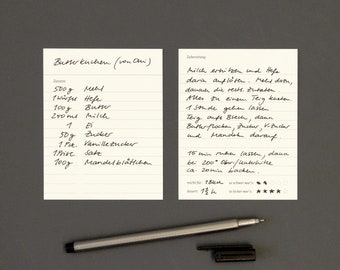 Butterkuchen (von Omi)
Zutaten
500 g Mehl
1 Würfel Hefe
100 g Butter
200 ml Milch
1 Ei
50 g Zucker
1 Pck Vanillezucker
1 Prise Salz
100 g Mandelblättchen
Zubereitung
Milch erhitzen und Hefe
darin auflösen. Mehl dazu,
danach die restl. Zutaten
Alles zu einem Teig kneten
1 Stunde gehen lassen
Teig aufs Blech, dann
Butterflocken, Zucker, V-Zucker
und Mandeln darauf.
15 min ruhen lassen, dann
bei 200° Ober/Unterhitze
ca. 20 min backen.
reicht für 1 Blech so schwer war's
dauert 1 1/2 h so lecker war's